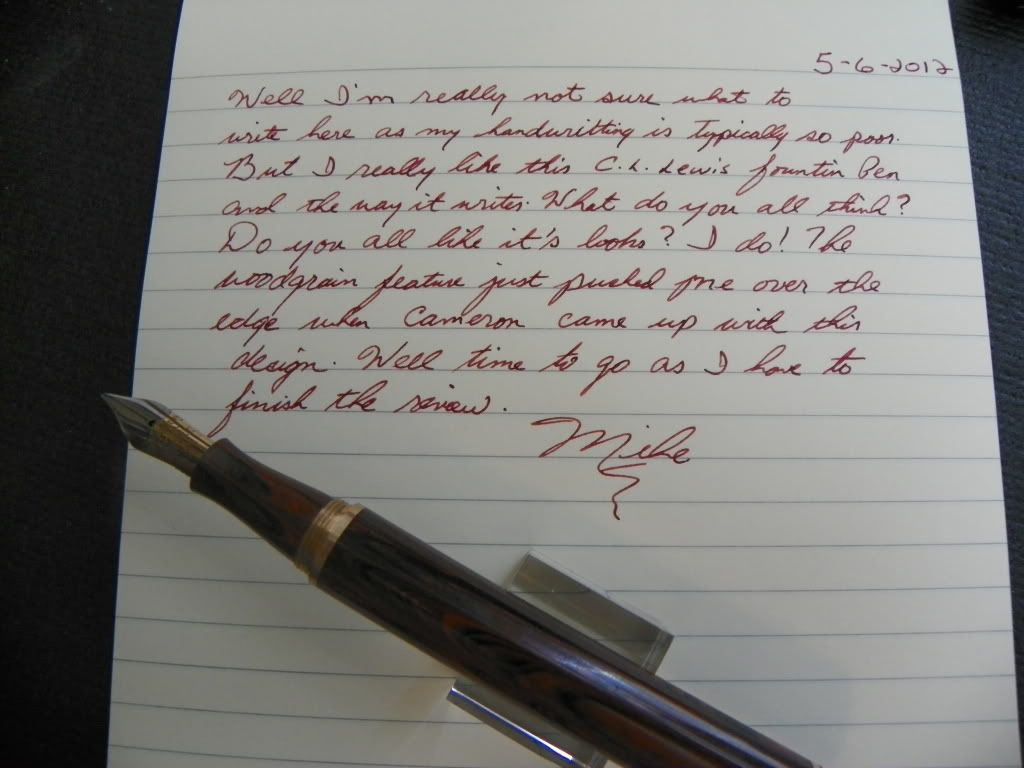 5-6-2012
Well I'm really not sure what to
write here as my handwritting is typically so poor.
But I really like this C.L. Lewis fountin Pen
and the way it writes. What do you all think?
Do you all like it's looks? I do! The
woodgrain feature just pushed me over the
edge when Cameron came up with this
design. Well time to go as I have to
finish the review.
Mike